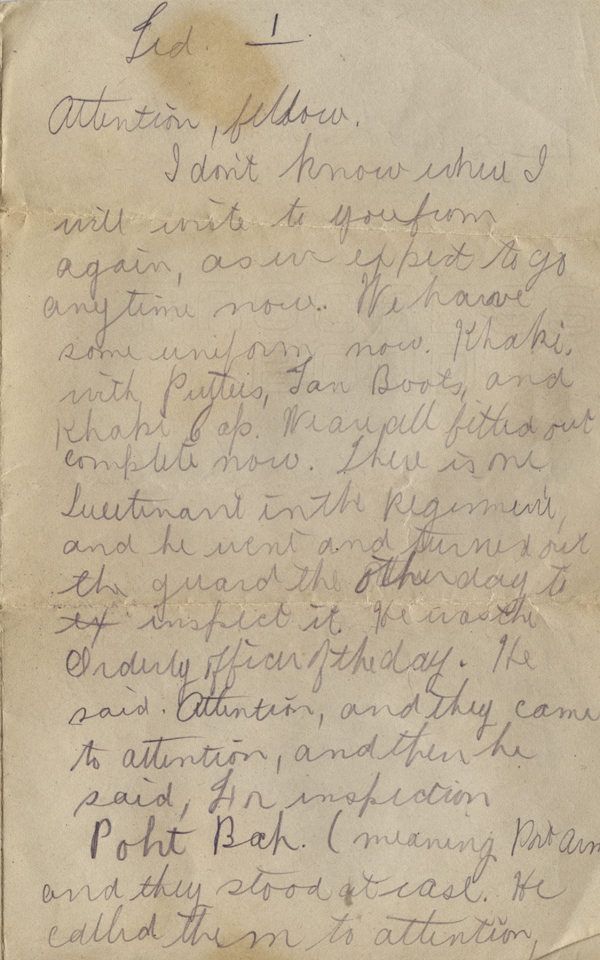 Sid. 1.
Attention, fellow.
I don't know where I
will write to you from
again, as we expect to go
anytime now. We have
some uniform now. Khaki,
with Putteis, Tan Boots, and
Khaki Cap. We are all fitted out
complete now. There is one
Lieutenant in the Regiment,
and he went and turned out
the guard the other day to
inspect it. He was the
Orderly officer of the day. He
said. Attention, and they came
to attention, and then he
said, For inspection
Poht Bah. (meaning Port Arm
and they stood at ease. He
called them to attention,